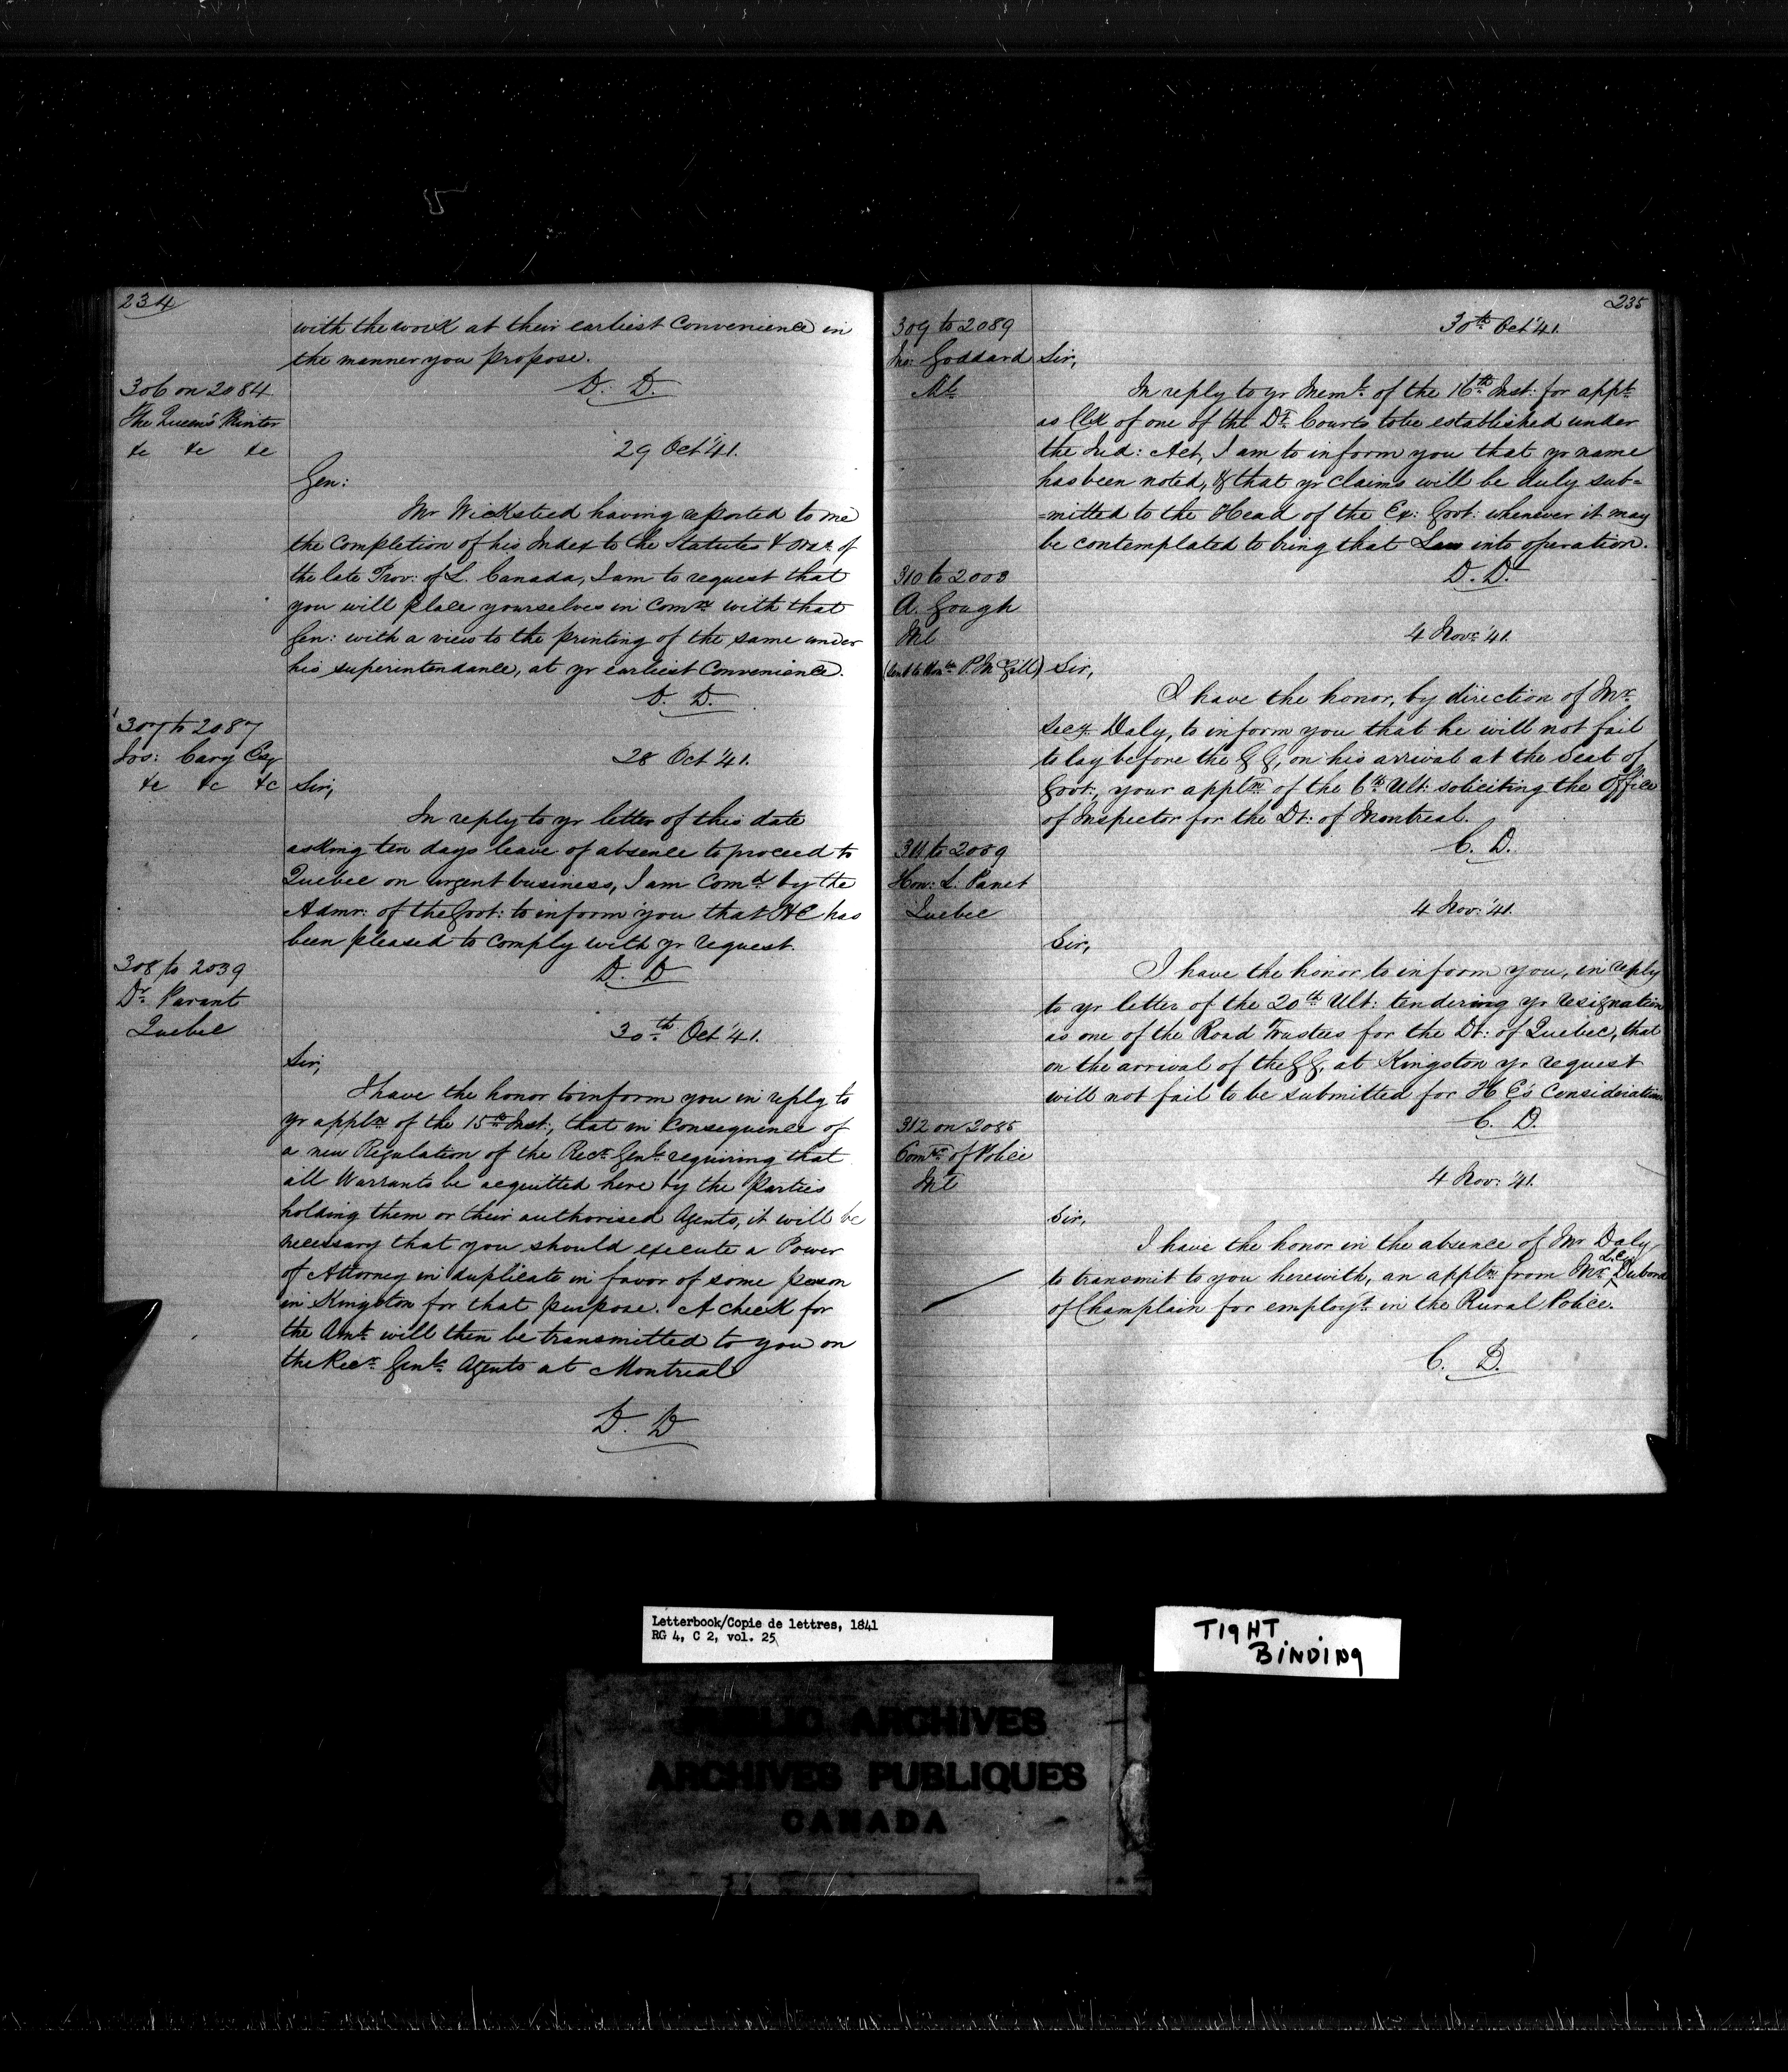 234
with the work at their earliest convenience in
the manner you propose.
D. D.
306 on 2084
The Queen's Printer
&c &c &c
29 Oct '41.
Gen:
Mr Wicksteed having reported to me
the completion of his Index to the Statutes & Ords. of
the late Prov: of L. Canada, I am to request that
you will place yourselves in Comn. with that
Gen: with a view to the printing of the same under
his superintendance, at yr earliest convenience.
D. D.
307 to 2087
Jos: Cary Esq
&c &c &c
28 Oct '41.
Sir,
In reply to yr letter of this date
asking ten days leave of absence to proceed to
Quebec on urgent business, I am Comd. by the
Admr: of the Govt: to inform you that HE has
been pleased to comply with yr request.
D. D
308 to 2039
Dr. Parant
Quebec
30th Oct '41.
Sir,
I have the honor to inform you in reply to
yr appln of the 15th Inst:, that in consequence of
a new Regulation of the Recr. Genl. requiring that
all Warrants be acquitted here by the Parties
holding them or their authorised Agents, it will be
necessary that you should execute a Power
of Attorney in duplicate in favor of some person
in Kingston for that purpose. A check for
the Amt. will then be transmitted to you on
the Recr. Genls. Agents at Montreal
D. D
235
309 to 2089
Jno: Goddard
Mt.
30th Oct '41.
Sir,
In reply to yr Meml. of the 16th Inst: for appt.
as Clk of one of the Dt. Courts to be established under
the Jud: Act, I am to inform you that yr name
has been noted, & that yr claims will be duly sub=
=mitted to the Head of the Ex: Govt: whenever it may
be contemplated to bring that Law into operation.
D. D.
310 to 2003
A. Gough
Mt
(Sent to Honble. P. McGill)
4 Novr. '41.
Sir,
I have the honor, by direction of Mr.
Secy. Daly, to inform you that he will not fail
to lay before the GG, on his arrival at the Seat of
Govt:, your appln. of the 6th Ult: soliciting the Office
of Inspector for the Dt: of Montreal.
C. D.
311 to 2059
Hon: L. Panet
Quebec
4 Nov: '41.
Sir,
I have the honor to inform you, in reply
to yr letter of the 20th Ult: tendering yr resignation
as one of the Road Trustees for the Dt: of Quebec, that
on the arrival of the GG, at Kingston yr request
will not fail to be submitted for H E's consideration
C. D.
312 on 2085
Comr. of Police
Mt
4 Nov: '41.
Sir,
I have the honor in the absence of Mr Daly,
to transmit to you herewith, an appln. from Mr. Dubord
of Champlain for employt. in the Rural Police.
C. D.
Letterbook/Copie de lettres, 1841
RG 4, C 2, vol. 25
TIGHT
BINDING
PUBLIC ARCHIVES
ARCHIVES PUBLIQUES
CANADA